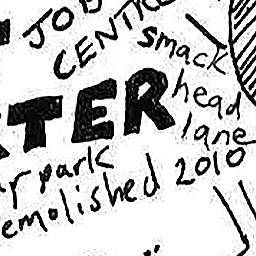 JOB
CENTRE
smack
head
lane
TER
r park
emolished 2010